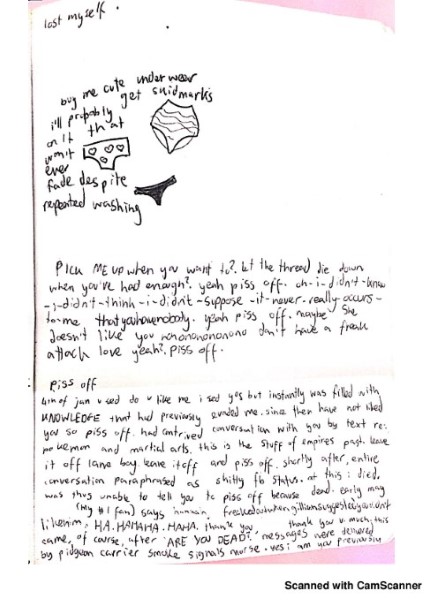 lost myself.
buy me cute underwear
i'll probably get skidmarks
on it that
won't
ever
fade despite
repeated washing
PICK ME UP when you want to?. let the thread die down
when you've had enough?. yeah piss off. oh-i-didn't-know
-i-didn't-think-i-didn't-suppose-it-never-really-occurs-
to-me that you have nobody. yeah piss off. maybe she
doesn't like you nononononononono don't have a freak
attack love yeah?. piss off.
piss off
4th of jan u sed do u like me i sed yes but instantly was filled with
KNOWLEDGE that had previously evaded me. since then have not liked
you so piss off. had contrived conversation with you by text re:
pokemon and martial arts. this is the stuff of empires past. leave
it off lane boy leave it off and piss off. shortly after, entire
conversation paraphrased as shitty fb status. at this i died,
was thus unable to tell you to piss off because dead. early may
(my #1 fan) says freaked out when gillian suggested you didn't
like him, HA. HAHAHA. HAHA. thank you, thank you v. much, this
came, of course, after 'ARE YOU DEAD?' messages were delivered
by pidgeon carrier smoke signals nurse. yes i am you previously
Scanned with CamScanner